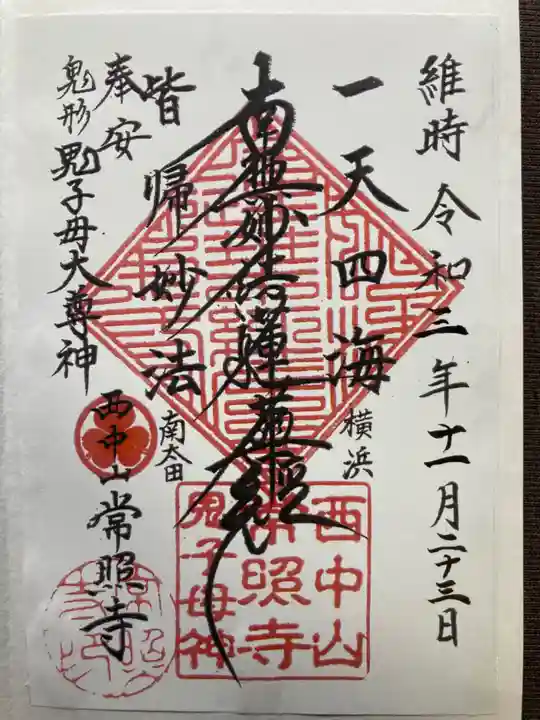 維時 令和三年十一月二十三日
一天四海
横浜
南無妙法蓮華経
皆帰妙法
南太田
奉安
鬼形 鬼子母大尊神
西中山 常照寺
西中山
常照寺
鬼子母神